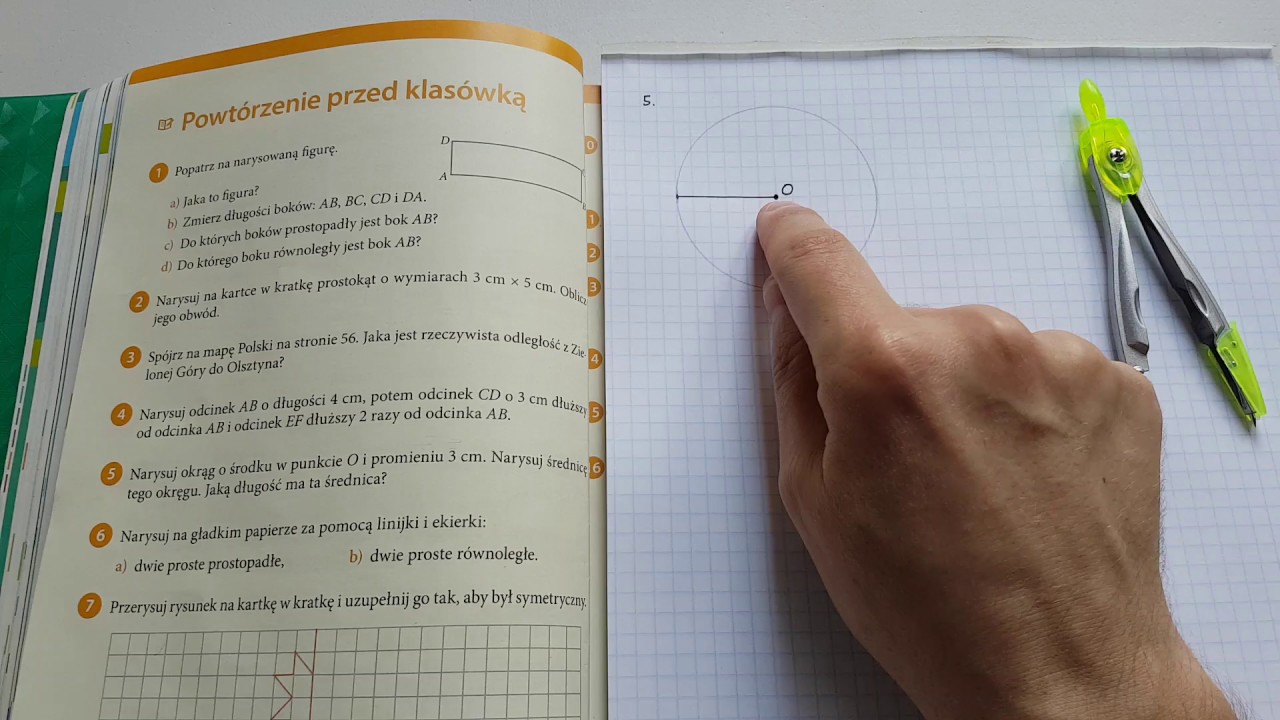 Powtórzenie przed klasówką
1 Popatrz na narysowaną figurę.
D
A
a) Jaka to figura?
b) Zmierz długości boków: AB, BC, CD i DA.
c) Do których boków prostopadły jest bok AB?
d) Do którego boku równoległy jest bok AB?
2 Narysuj na kartce w kratkę prostokąt o wymiarach 3 cm × 5 cm. Oblicz
jego obwód.
3 Spójrz na mapę Polski na stronie 56. Jaka jest rzeczywista odległość z Zie-
lonej Góry do Olsztyna?
4 Narysuj odcinek AB o długości 4 cm, potem odcinek CD o 3 cm dłuższy
od odcinka AB i odcinek EF dłuższy 2 razy od odcinka AB.
5 Narysuj okrąg o środku w punkcie O i promieniu 3 cm. Narysuj średnicę
tego okręgu. Jaką długość ma ta średnica?
6 Narysuj na gładkim papierze za pomocą linijki i ekierki:
a) dwie proste prostopadłe, b) dwie proste równoległe.
7 Przerysuj rysunek na kartkę w kratkę i uzupełnij go tak, aby był symetryczny.
0
1
2
3
4
5
6
5.
O